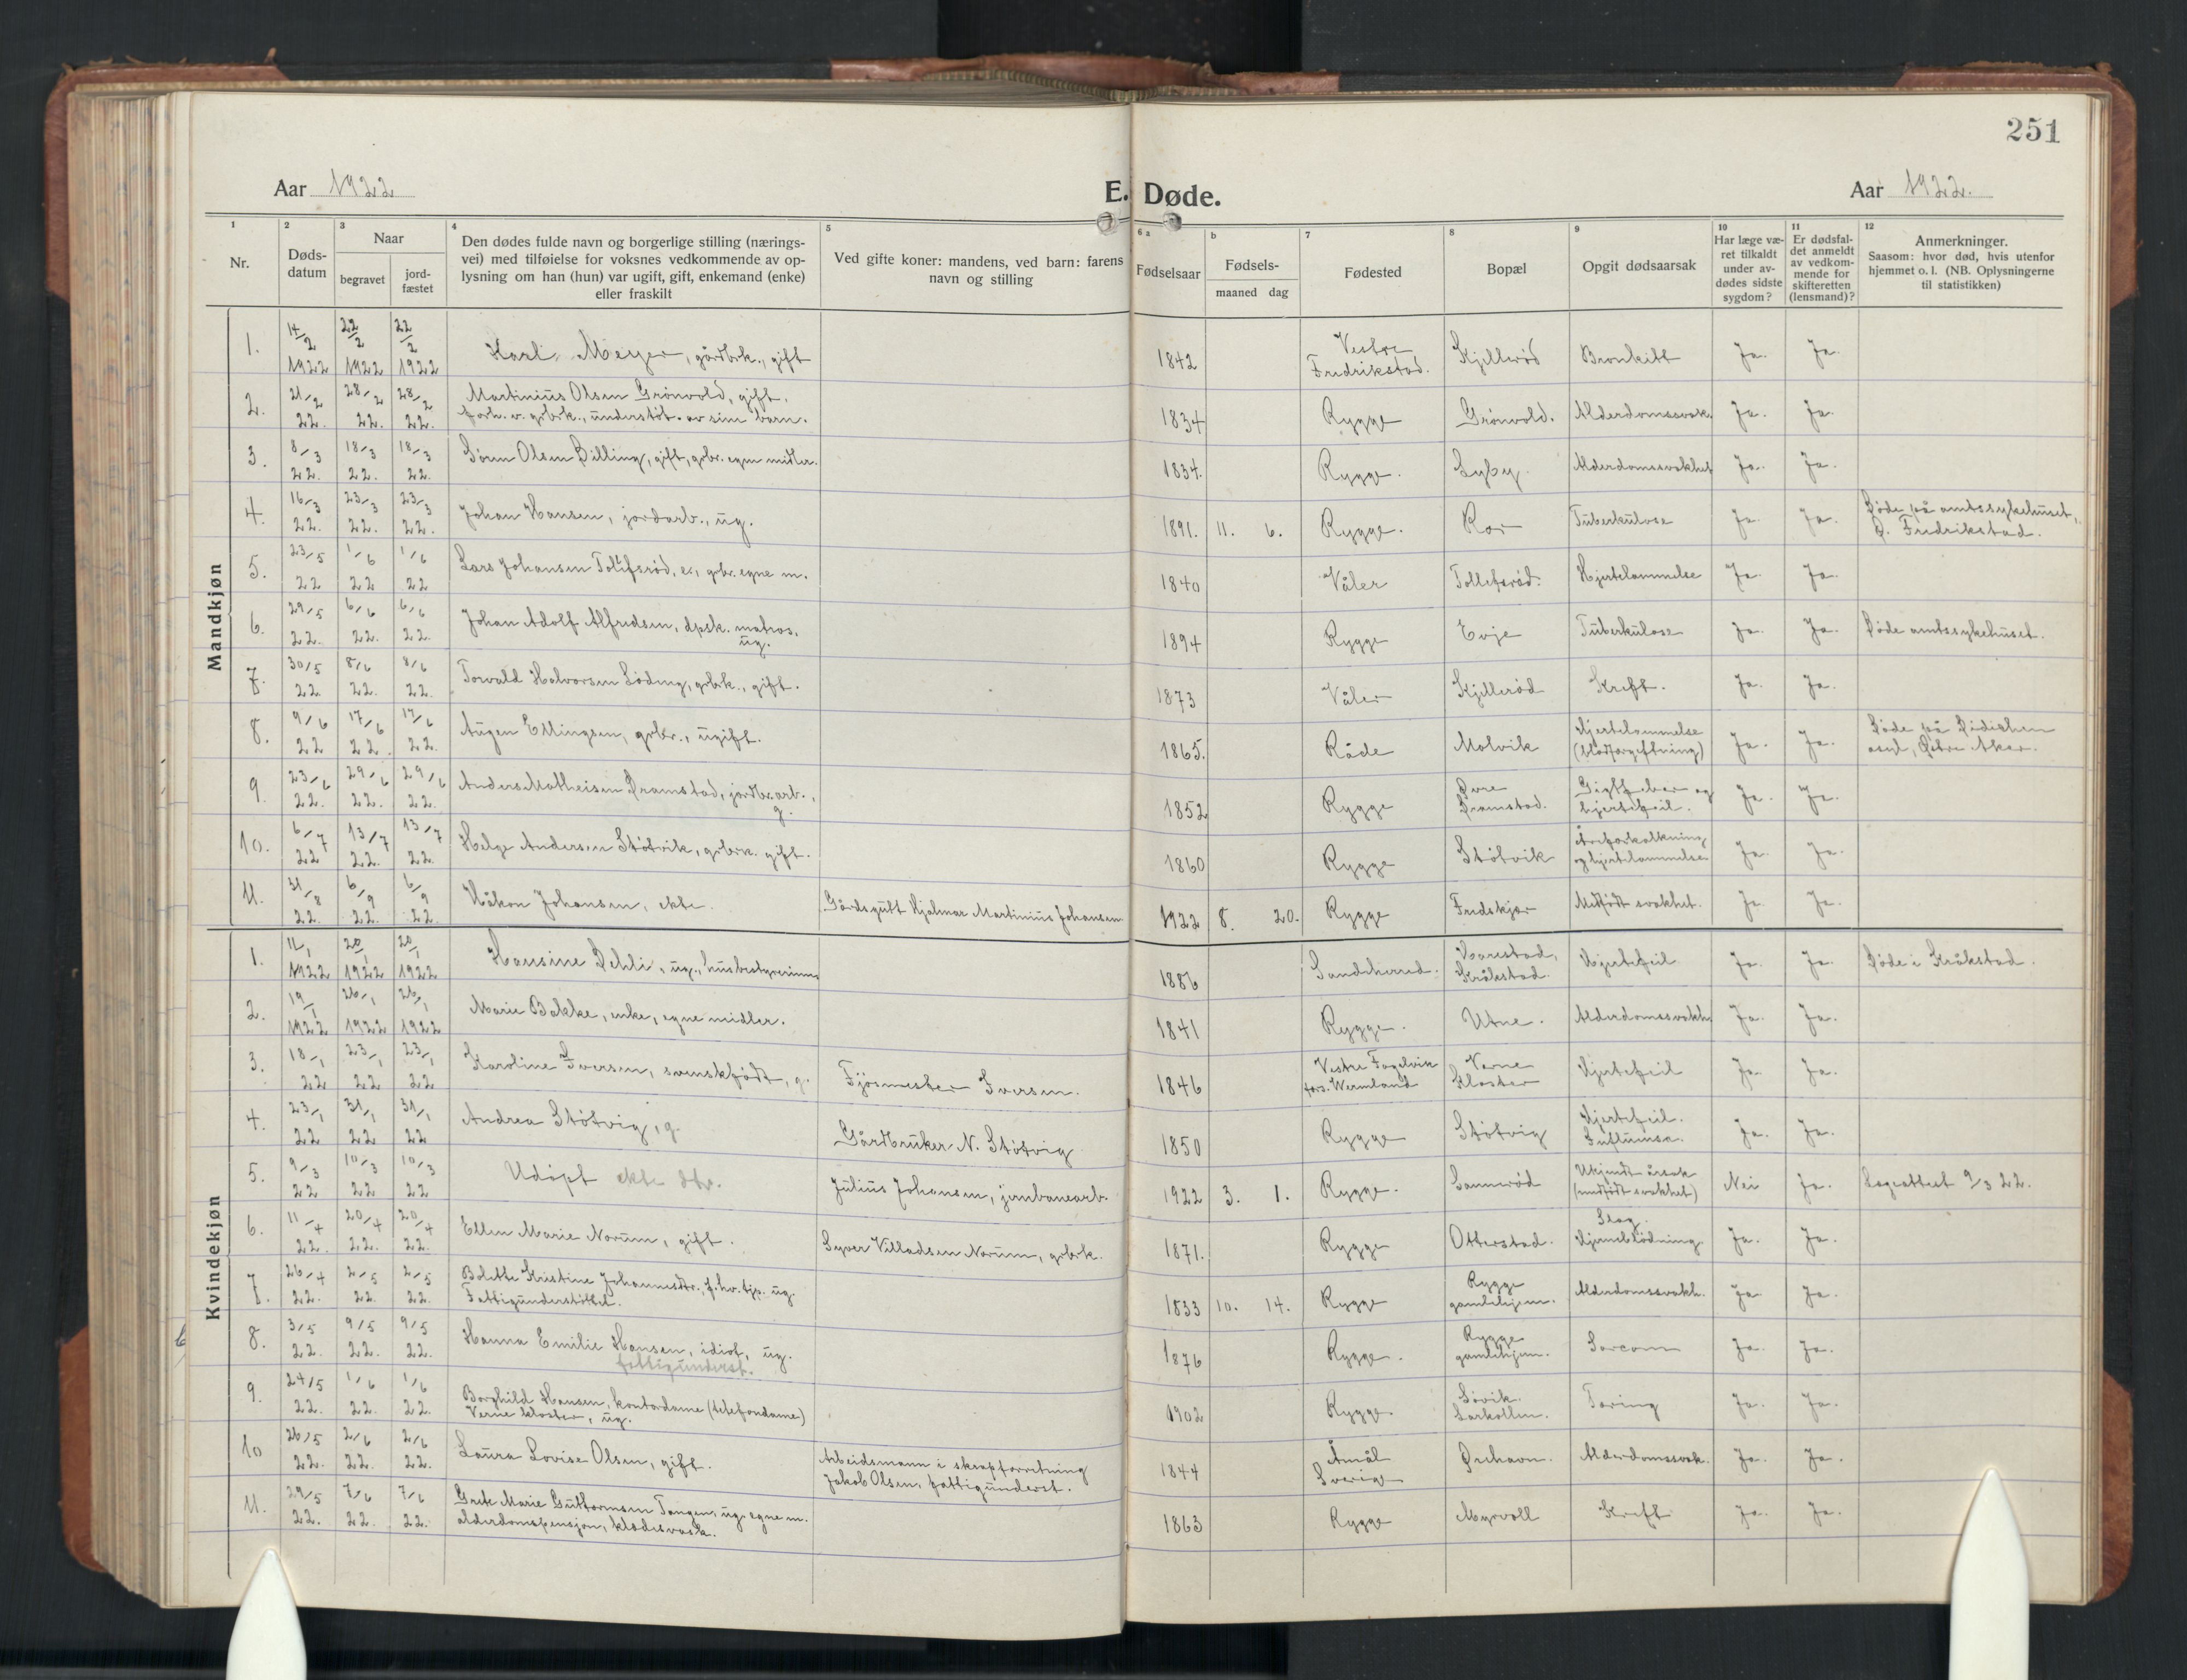 251
Aar 1922
E. Døde.
Aar 1922.
1 2 3 4 5 6 a b 7 8 9 10 11 12
Nr.
Døds-
datum
Naar
begravet
jord-
fæstet
Den dødes fulde navn og borgerlige stilling (nærings-
vei) med tilføielse for voksnes vedkommende av op-
lysning om han (hun) var ugift, gift, enkemand (enke)
eller fraskilt
Ved gifte koner: mandens, ved barn: farens
navn og stilling
Fødselsaar
Fødsels-
maaned dag
Fødested
Bopæl
Opgit dødsaarsak
Har læge væ-
ret tilkaldt
under av-
dødes sidste
sygdom?
Er dødsfal-
det anmeldt
av vedkom-
mende for
skifteretten
(lensmand)?
Anmerkninger.
Saasom: hvor død, hvis utenfor
hjemmet o. l. (NB. Oplysningerne
til statistikken)
Mandkjøn
1. 14/2 1922 22/2 1922 22/2 1922 Karl Meyer, gårdbrk., gift 1842 Vestre Fredrikstad. Kjillerød Bronkitt Ja. Ja.
2. 21/2 22. 28/2 22. 28/2 22. Martinius Olsen Grønvold, gift.
forh. v. grbrk., understøt. av sine barn. 1834 Rygge Grønvold. Alderdomssvak. Ja. Ja.
3. 8/3 22. 18/3 22. 18/3 22. Søren Olsen Billing, gift, grbr. egne midler. 1834. Rygge. Alderdomssvakhet Ja. Ja.
4. 16/3 22. 23/3 22. 23/3 22. Johan Hansen, jordarb., ug. 1891. 11. 6. Rygge. Ror Tuberkulose Ja. Ja. Døde på amtssykehuset,
Ø. Fredrikstad.
5. 23/5 22 1/6 22 1/6 22 Lars Johansen Tollefsrød, e., grbr. egne m. 1840 Våler Tollefsrød. Hjertelammelse Ja. Ja.
6. 29/5 22. 6/6 22. 6/6 22. Johan Adolf Alfredsen, dpsk. matros,
ug. 1894 Rygge Evje Tuberkulose Ja. Ja. Døde amtssykehuset.
7. 30/5 22 8/6 22. 8/6 22. Torvald Halvorsen Løding, grbrk., gift. 1873 Våler Kjillerød Kreft. Ja. Ja.
8. 9/6 22 17/6 22. 17/6 22. Augen Ellingsen, grbr., ugift. 1865. Råde Molvik Hjertelammelse
(blodforgiftning) Ja. Ja. Døde på Dedichen
asyl, Østre Aker.
9. 23/6 22. 29/6 22. 29/6 22. Anders Matheisen Dramstad, jordbr.arb.,
g. 1852 Rygge Øvre
Dramstad. Gigtfeber og
hjertefeil. Ja. Ja.
10. 6/7 22 13/7 22. 13/7 22. Helge Andersen Støtvik, grbrk. gift. 1860 Rygge Støtvik Åreforkalkning
og hjertelammelse Ja. Ja.
11. 31/8 22. 6/9 22. 6/9 22. Håkon Johansen, ekte. Gårdsgutt Hjalmar Martinius Johansen 1922 8. 20. Rygge Fredskjær Medfødt svakhet. Ja. Ja.
Kvindekjøn
1. 11/1 1922 20/1 1922 20/1 1922 Hansine Dehli, ug., husbestyrerinne 1886 Sandeherred. Varestad,
Kråkstad Hjertefeil Ja. Ja. Døde i Kråkstad.
2. 19/1 1922 26/1 1922 26/1 1922 Marie Bakke, enke, egne midler. 1841 Rygge. Utne. Alderdomssvakh. Ja. Ja.
3. 18/1 22 23/1 22 23/1 22 Karoline Iversen, svenskfødt, g. Fjøsmester Iversen. 1846 Vestre Fagelvik
fors. Wermland Verne
Kloster Hjertefeil Ja. Ja.
4. 23/1 22 31/1 22 31/1 22 Andrea Støtvig, g. Gårdbruker N. Støtvig 1850 Rygge Støtvig Hjertefeil.
Influensa. Ja. Ja.
5. 9/3 22 10/3 22 10/3 22 Udøpt ekte dtr. Julius Johansen, jernbanearb. 1922 3. 1. Rygge. Sannerød Ukjendt årsak
(medfødt svakhet) Nei Ja. Lægeattest 9/3 22.
6. 11/4 22. 20/4 22. 20/4 22. Ellen Marie Norum, gift. Syver Villadsen Norum, grbrk. 1871. Rygge Otterstad. Slag.
Hjerneblødning. Ja. Ja.
7. 26/4 22. 2/5 22. 2/5 22. Bolette Kristine Johannesdtr., f.hv. tjp. ug.
Fattigunderstøttet. 1833 10. 14. Rygge Rygge
gamlehjem. Alderdomssvakh. Ja. Ja.
8. 3/5 22. 9/5 22. 9/5 22. Hanna Emilie Hansen, idiot, ug.
fattigunderst. 1876 Rygge. Rygge
gamlehjem. Sarcom Ja. Ja.
9. 24/5 22. 1/6 22. 1/6 22. Borghild Hansen, kontordame (telefondame)
Verne kloster, ug. 1902 Rygge. Løvik
Larkollen. Tæring Ja. Ja.
10 26/5 22. 2/6 22. 2/6 22. Laura Lovise Olsen, gift. Arbeidsmann i skrapforretning
Jakob Olsen, fattigunderst. 1844 Åmål
Sverige Ørehavn. Alderdomssvak. Ja. Ja.
11. 29/5 22. 7/6 22. 7/6 22. Grete Marie Guttormsen Tangen, ug. egne m.
alderdomspensjon, klædesvask. 1863 Rygge Myrvoll Kreft Ja. Ja.